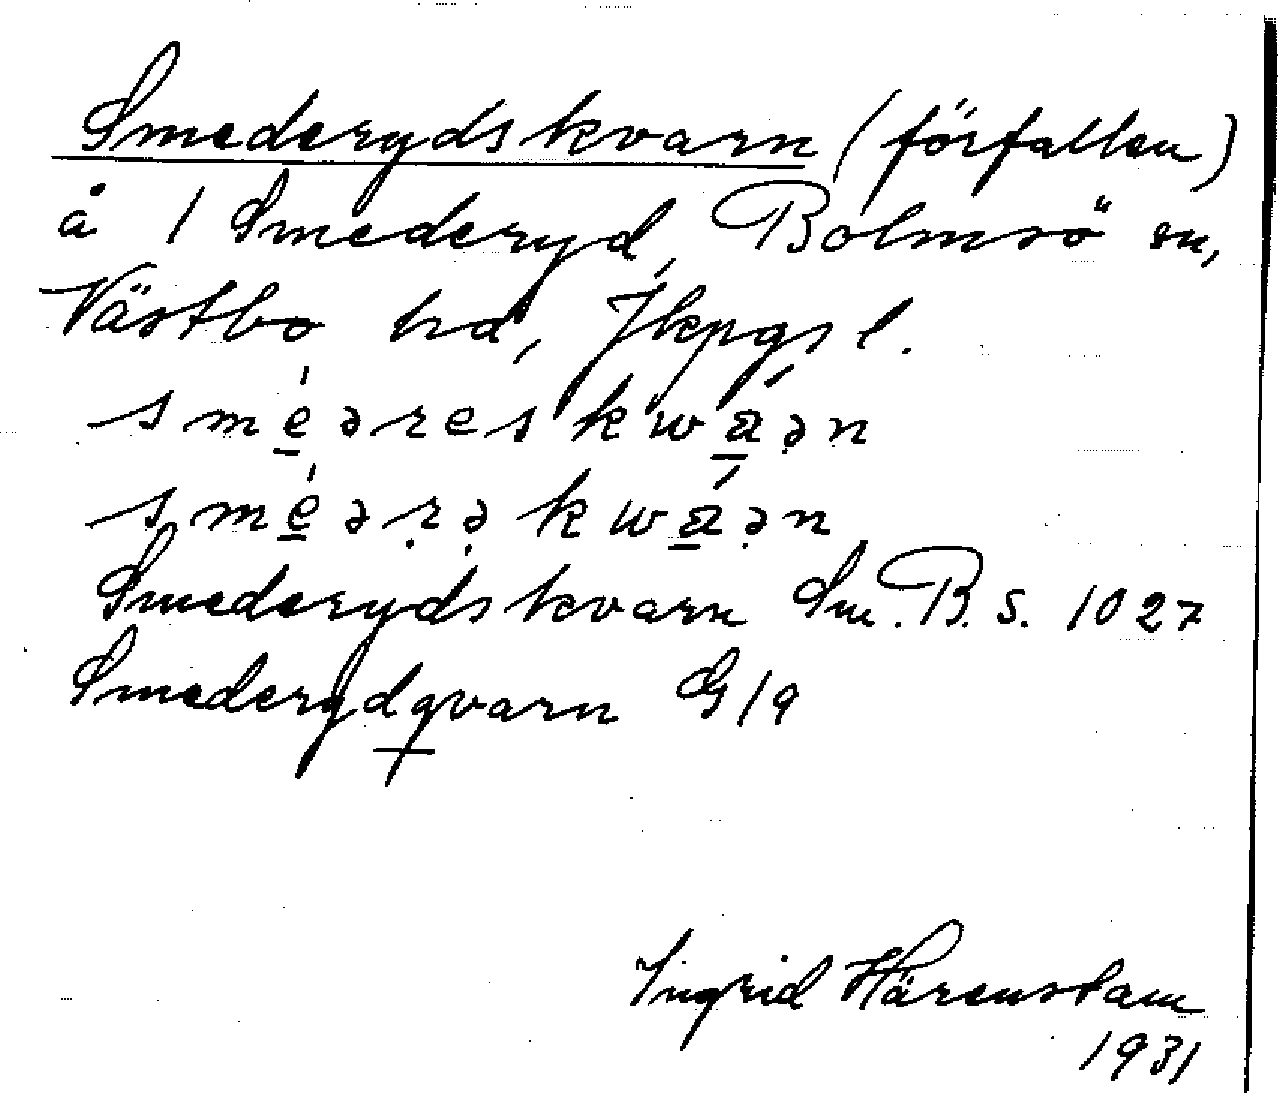 Smederydskvarn (förfallen)
å 1 Smederyd, Bolmsö sn,
Västbo hd, Jkpgs l.
smé̱əreskwá̱ə̣n
smé̱əṛə̣kwá̱ə̣n
Smederydskvarn Sm. B. s. 1027
Smederydqvarn G 19
Ingrid Härenstam
1931